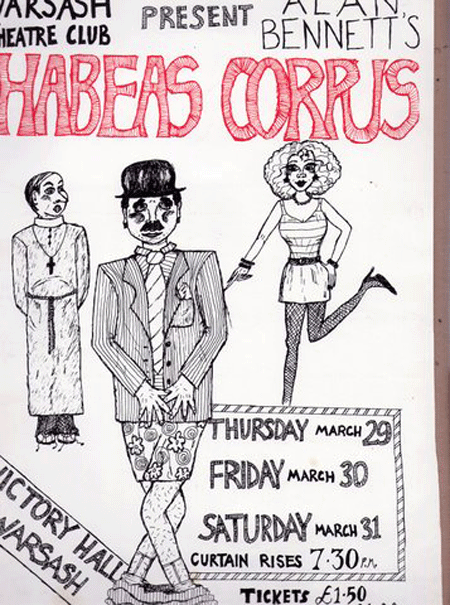 WARSASH
THEATRE CLUB
PRESENT
ALAN
BENNETT'S
HABEAS CORPUS
THURSDAY MARCH 29
FRIDAY MARCH 30
SATURDAY MARCH 31
CURTAIN RISES 7.30 P.M.
VICTORY HALL
WARSASH
TICKETS £1.50